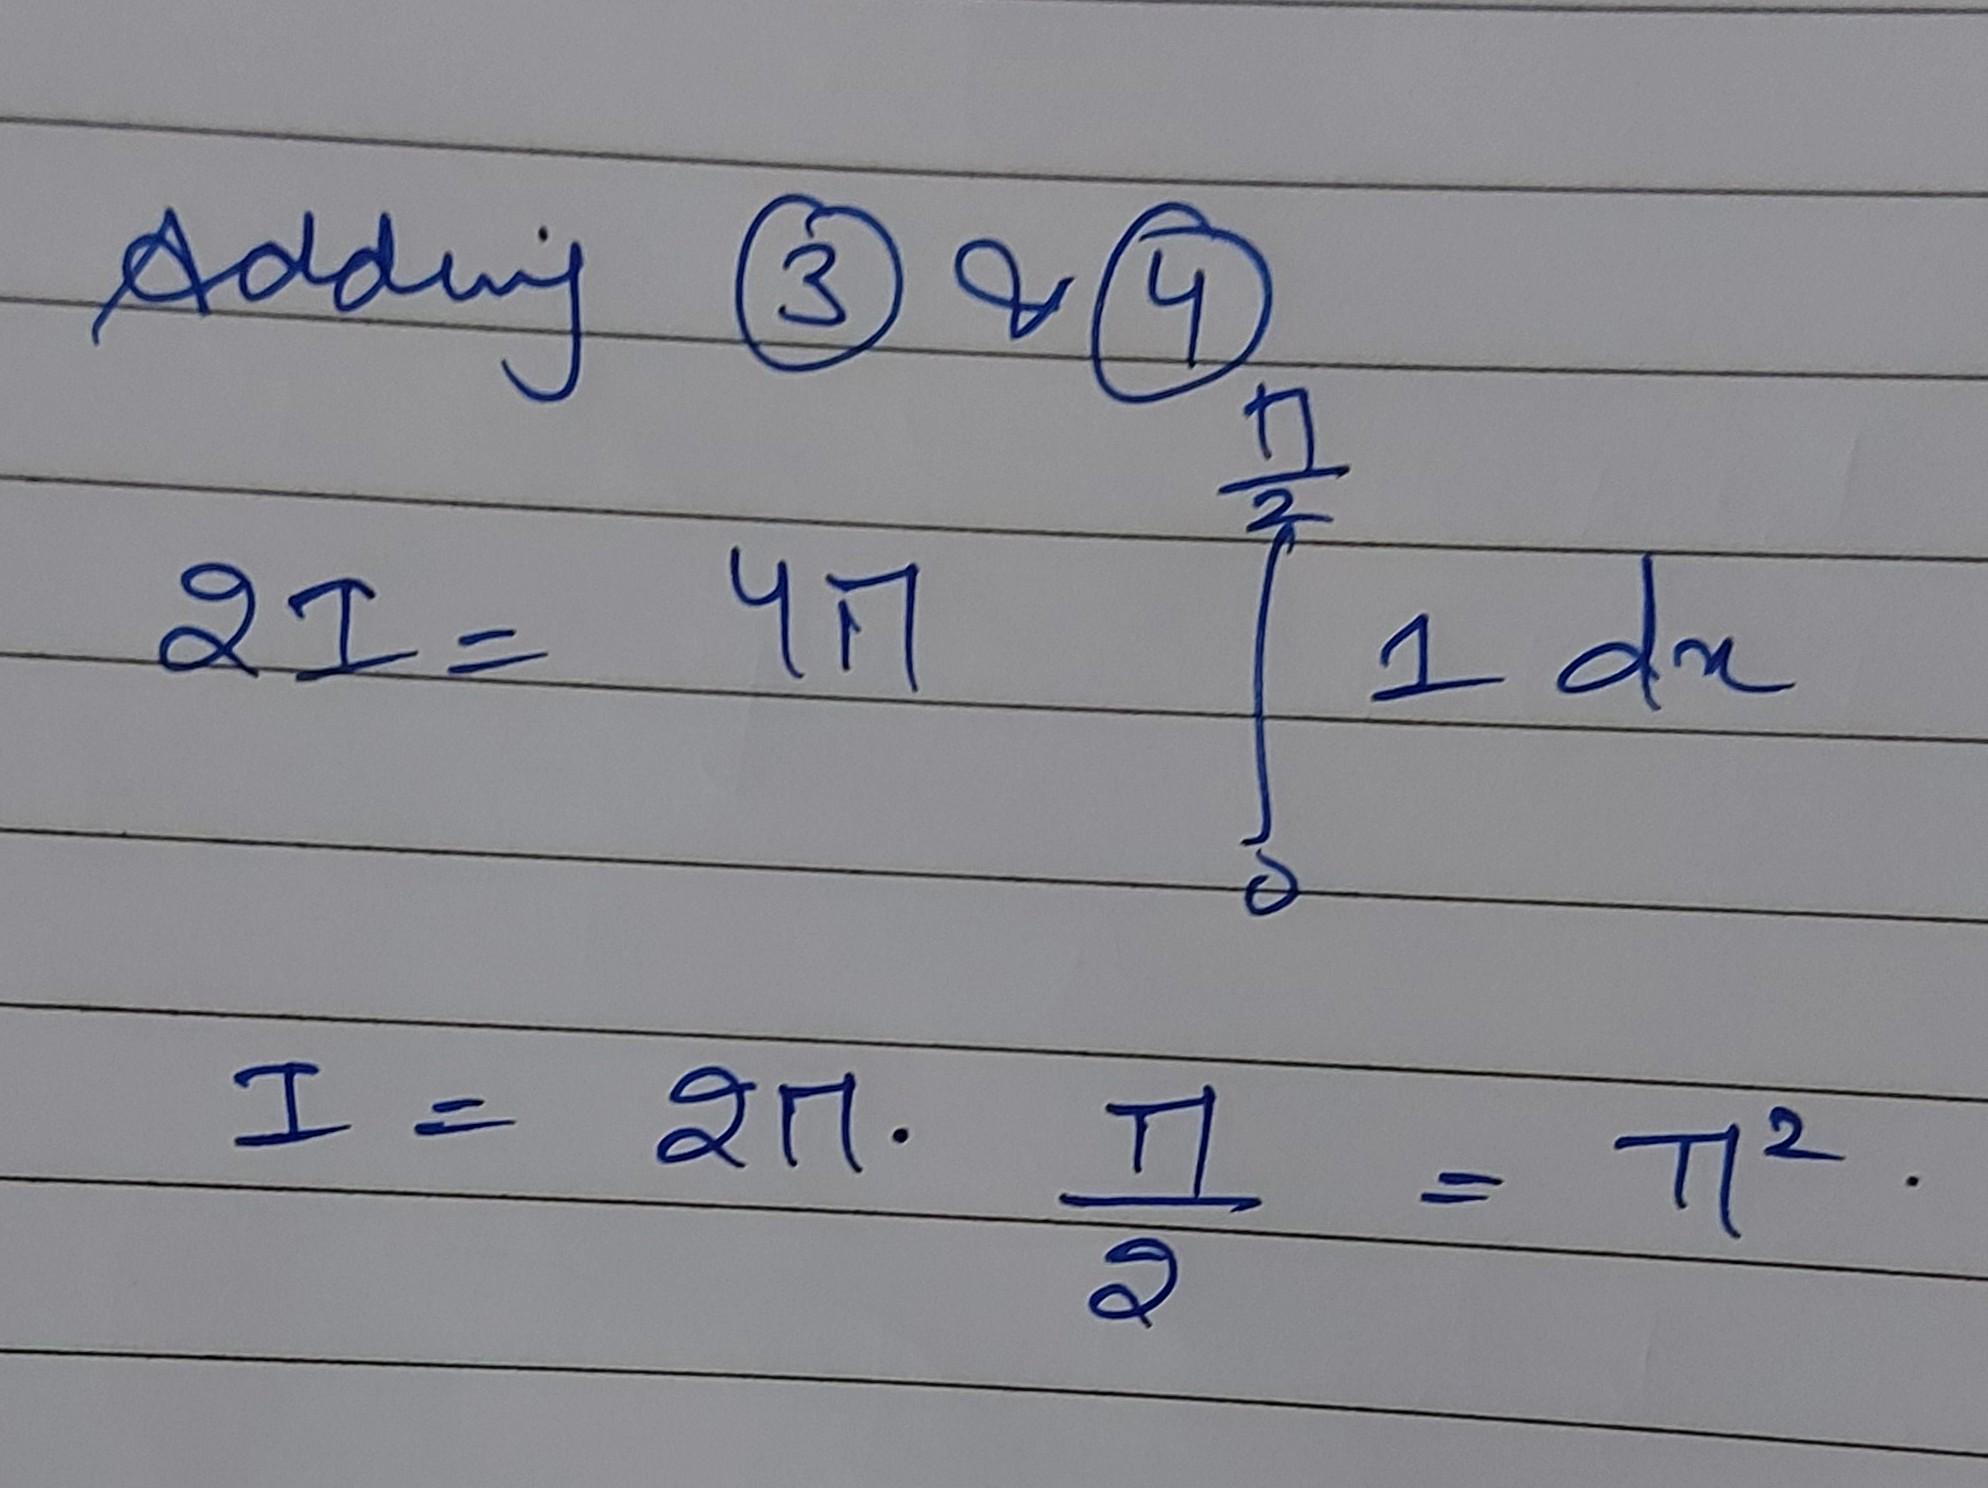 Adding ③ & ④
2I = 4π ∫₀^(π/2) 1 dx
I = 2π. π/2 = π².